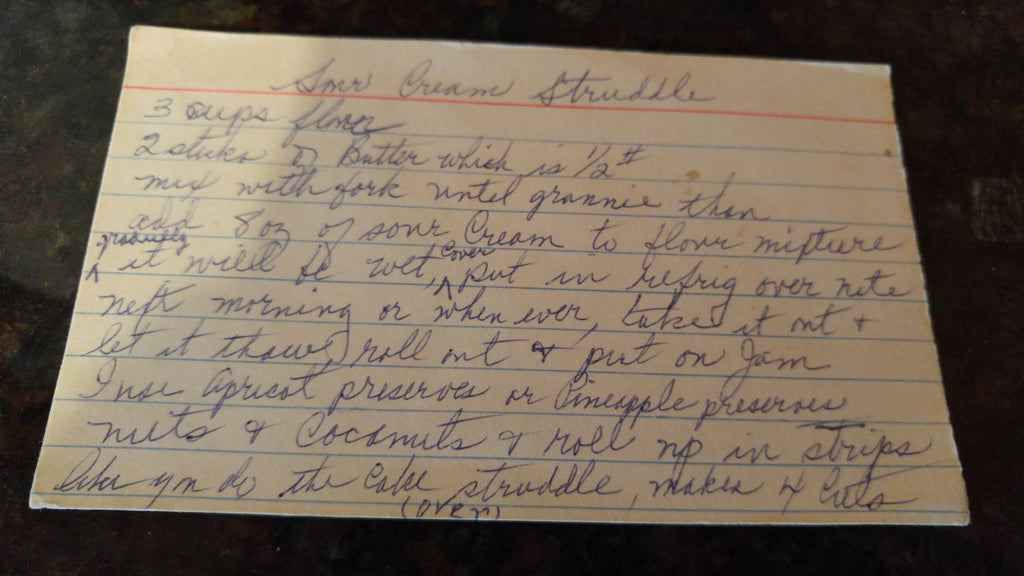 Sour Cream Struddle
3 cups flour
2 sticks of Butter which is 1/2 #
mix with fork until grannie than
add 8 oz of sour Cream to flour mixture
it will be wet, cover put in refrig over nite
next morning or when ever, take it out +
let it thaw, roll out & put on Jam
I use Apricot preserves or Pineapple preserves
nuts & Coconuts & roll up in strips
like you do the Cake struddle, makes 4 Cuts
(over)